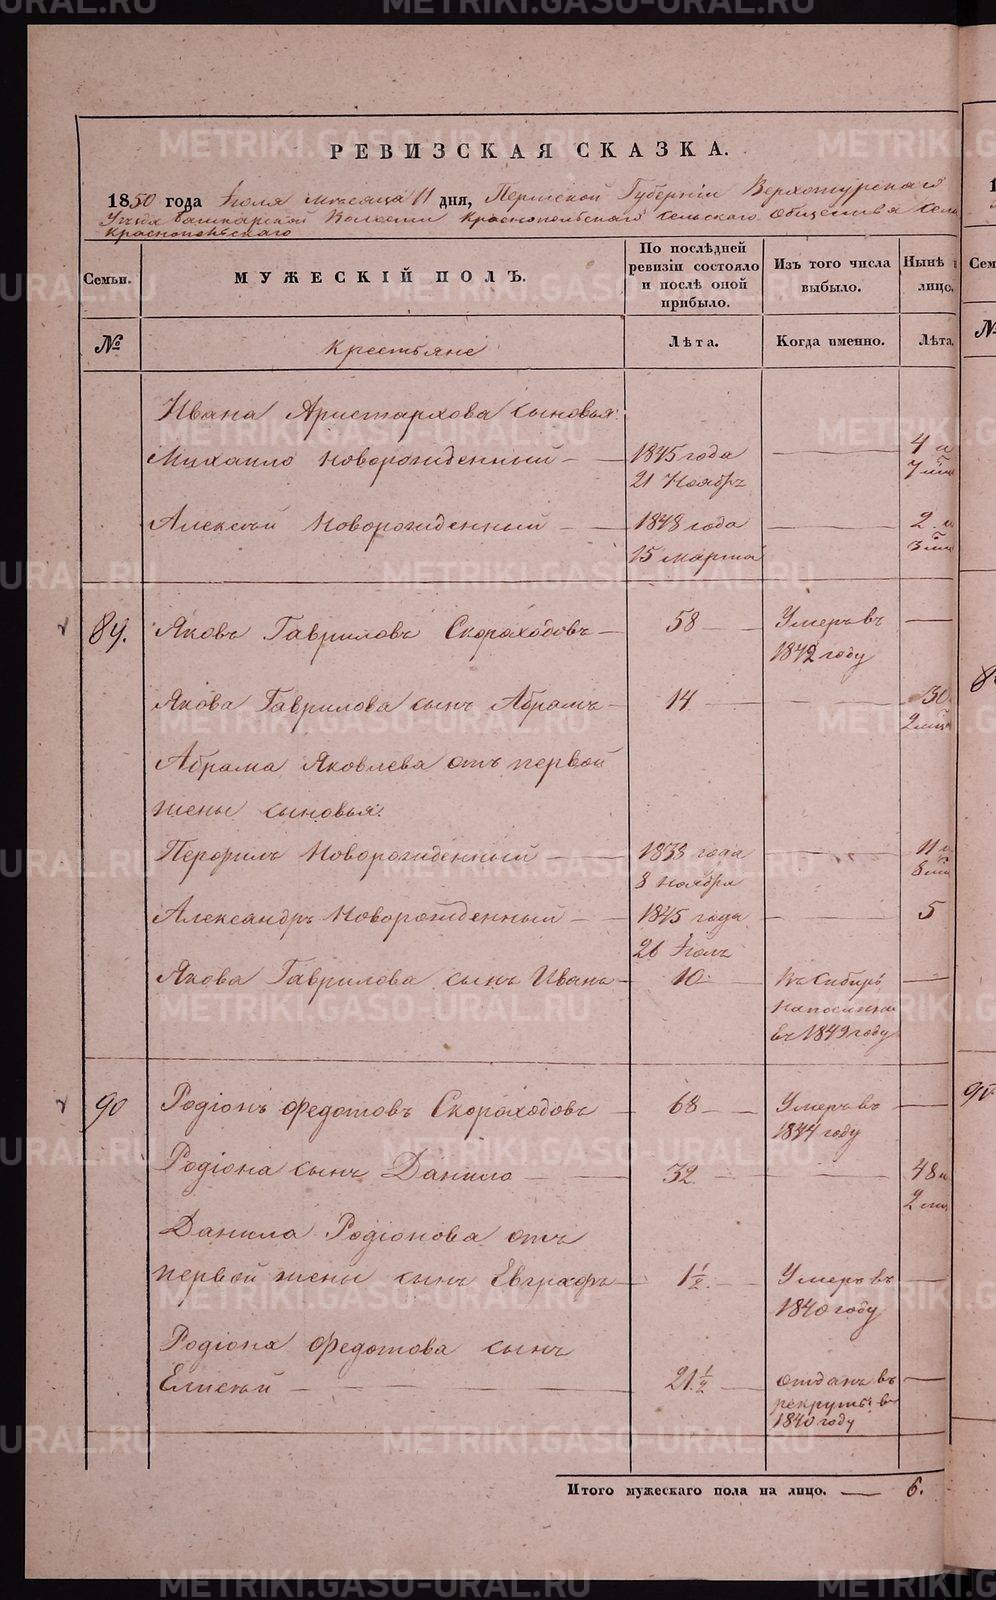 РЕВИЗСКАЯ СКАЗКА.
1850 года Іюля мѣсяца 11 дня, Пермской Губерніи Верхотурскаго
Уѣзда Башкарской Волости Краснопольскаго сельскаго общества села
Краснопольскаго
Семьи.
МУЖЕСКІЙ ПОЛЪ.
По послѣдней ревизіи состояло и послѣ оной прибыло.
Изъ того числа выбыло.
Нынѣ
лицо.
№
Крестьяне
Лѣта.
Когда именно.
Лѣта.
Ивана Аристархова сыновья:
Михаило Новорожденный — 1845 года — 4
21 Ноябрь 7
Алексѣй Новорожденный — 1848 года — 2
15 марта 3
89. Яковъ Гавриловъ Скороходовъ — 58 — Умеръ въ —
1842 году
Якова Гаврилова сынъ Абрамъ — 14 — 30
2
Абрама Яковлева отъ первой
жены сыновья:
Перфилъ Новорожденный — 1838 года — 11
8 ноября 8
Александръ Новорожденный — 1845 года — 5
26 Іюль
Якова Гаврилова сынъ Иванъ — 10 — Въ Сибирь —
на поселеніи
въ 1849 году
90 Родіонъ Федотовъ Скороходовъ — 68 — Умеръ въ —
1844 году
Родіона сынъ Данило — 32 — 48
2
Данила Родіонова отъ
первой жены сынъ Евграфъ — 1½ — Умеръ въ —
1840 году
Родіона Федотова сынъ
Елисѣй — 21½ — отданъ въ —
рекруты въ
1840 году
Итого мужескаго пола на лицо. — 6.
METRIKI.GASO-URAL.RU